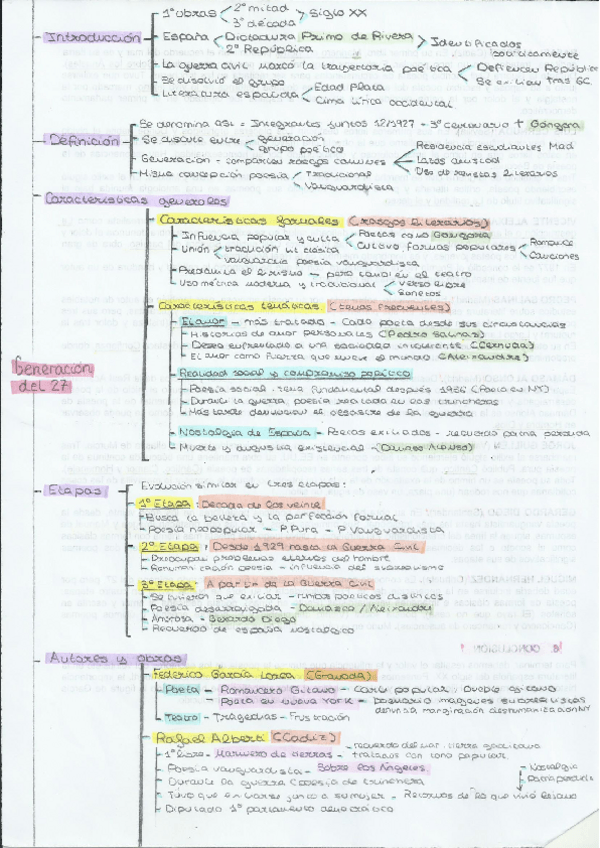 Generación del 27
Introducción
1ª obras
2ª mitad
3ª década
Siglo XX
España
Dictadura Primo de Rivera
2ª República
Identificados políticamente
La guerra civil marcó la trayectoria poética
Defienden República
Se exilian tras GC.
Se disolvió el grupo
Literatura española
Edad Plata
Cima lírica occidental
Definición
Se denomina así = Integrantes juntos 12/1927 - 3º centenario + Góngora
Se discute entre
generación
grupo poético
Generación - comparten rasgos comunes
Residencia estudiantes Mad
Lazos amistad
Uso de revistas literarias
Misma concepción poesía
Tradicional
Vanguardista
Características generales
Características formales (Rasgos literarios)
Influencia popular y culta
Poetas como Góngora
Cultivo formas populares
Romance
Canciones
Unión
tradición lit clásica
vanguardia poesía vanguardista
Predomina el lirismo - para también en el teatro
Uso métrica moderna y tradicional
verso libre
Sonetos
Características temáticas (Temas Frecuentes)
El amor - más tratado - Cada poeta desde sus circunstancias
Historias de amor personales (Pedro Salinas)
Deseo enfrentado a una sociedad intolerante (Cernuda)
El amor como fuerza que mueve el mundo (Aleixandre)
Realidad social y compromiso político
Poesía social - tema fundamental después 1926 (Poeta en NY)
Durante la guerra, poesía recitada en las trincheras
Más tarde denuncian el desastre de la guerra
Nostalgia de España - Poetas exiliados - recuerdo patria perdida
Muerte y angustia existencial - (Dámaso Alonso)
Etapas
Evolución similar en tres etapas:
1ª Etapa: Década de los veinte
Busca la belleza y la perfección formal
Poesía neopopular - P. Pura - P Vanguardista
2ª Etapa: Desde 1929 hasta la Guerra Civil
problemas eternos del hombre
poesía - influencia del surrealismo
3ª Etapa: A partir de la Guerra Civil
Se tuvieron que exiliar - rumbos poéticos distintos
Poesía desarraigada - Dámaso / Aleixandre
Amorosa - Gerardo Diego
Recuerdo de España nostálgico
Autores y obras
Federico García Lorca (Granada)
Poeta - Romancero Gitano - Carác popular, pueblo gitano
Poeta en Nueva York - poemario imágenes surrealistas
denuncia marginación deshumanización NY
Teatro - Tragedias - Frustración
Rafael Alberti (Cádiz)
1º libro - Marinero en tierras
recuerdo del mar, tierra gaditana
tratados con tono popular.
Poesía vanguardista - Sobre los Ángeles
Durante la guerra (poesía de trinchera)
Tuvo que exiliarse junto a su mujer - Retornos de lo que vivió lejano
Nostalgia
Patria perdida
Diputado 1º parlamento democrático
8. CONCLUSIÓN